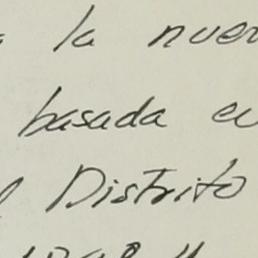 la nuev
basada en
Distrito